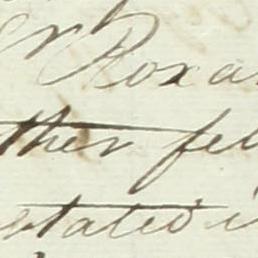 Roxa
ther fel
stated i